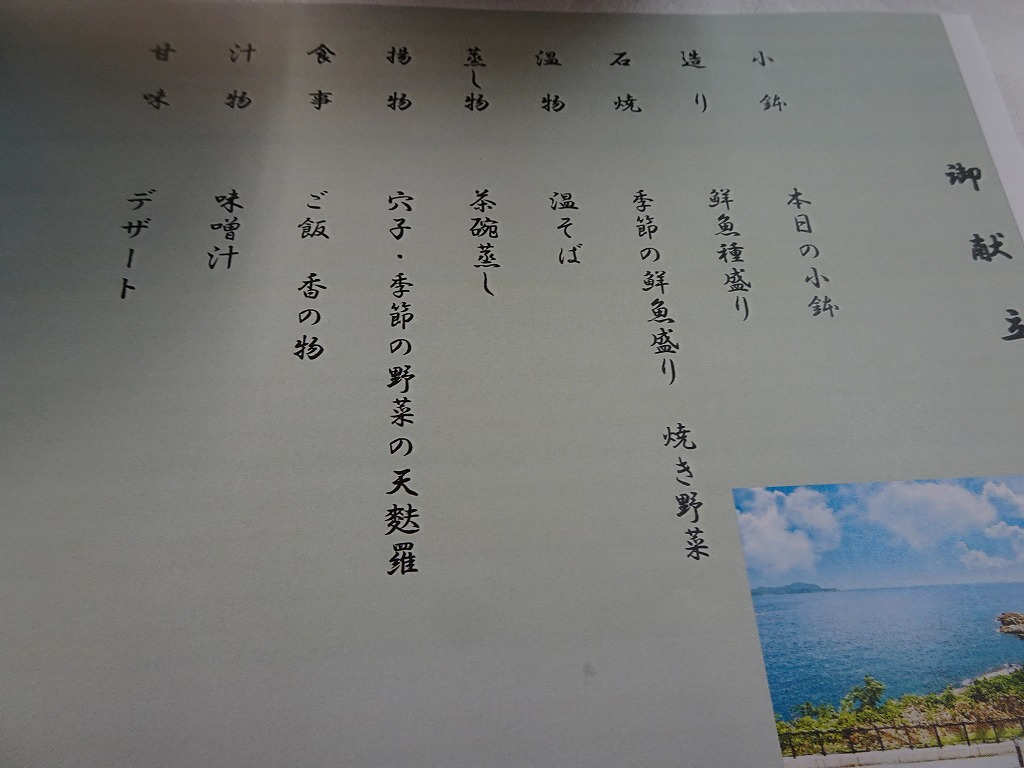 御献立
小鉢 本日の小鉢
造り 鮮魚種盛り
石焼 季節の鮮魚盛り 焼き野菜
温物 温そば
蒸し物 茶碗蒸し
揚物 穴子・季節の野菜の天麩羅
食事 ご飯 香の物
汁物 味噌汁
甘味 デザート